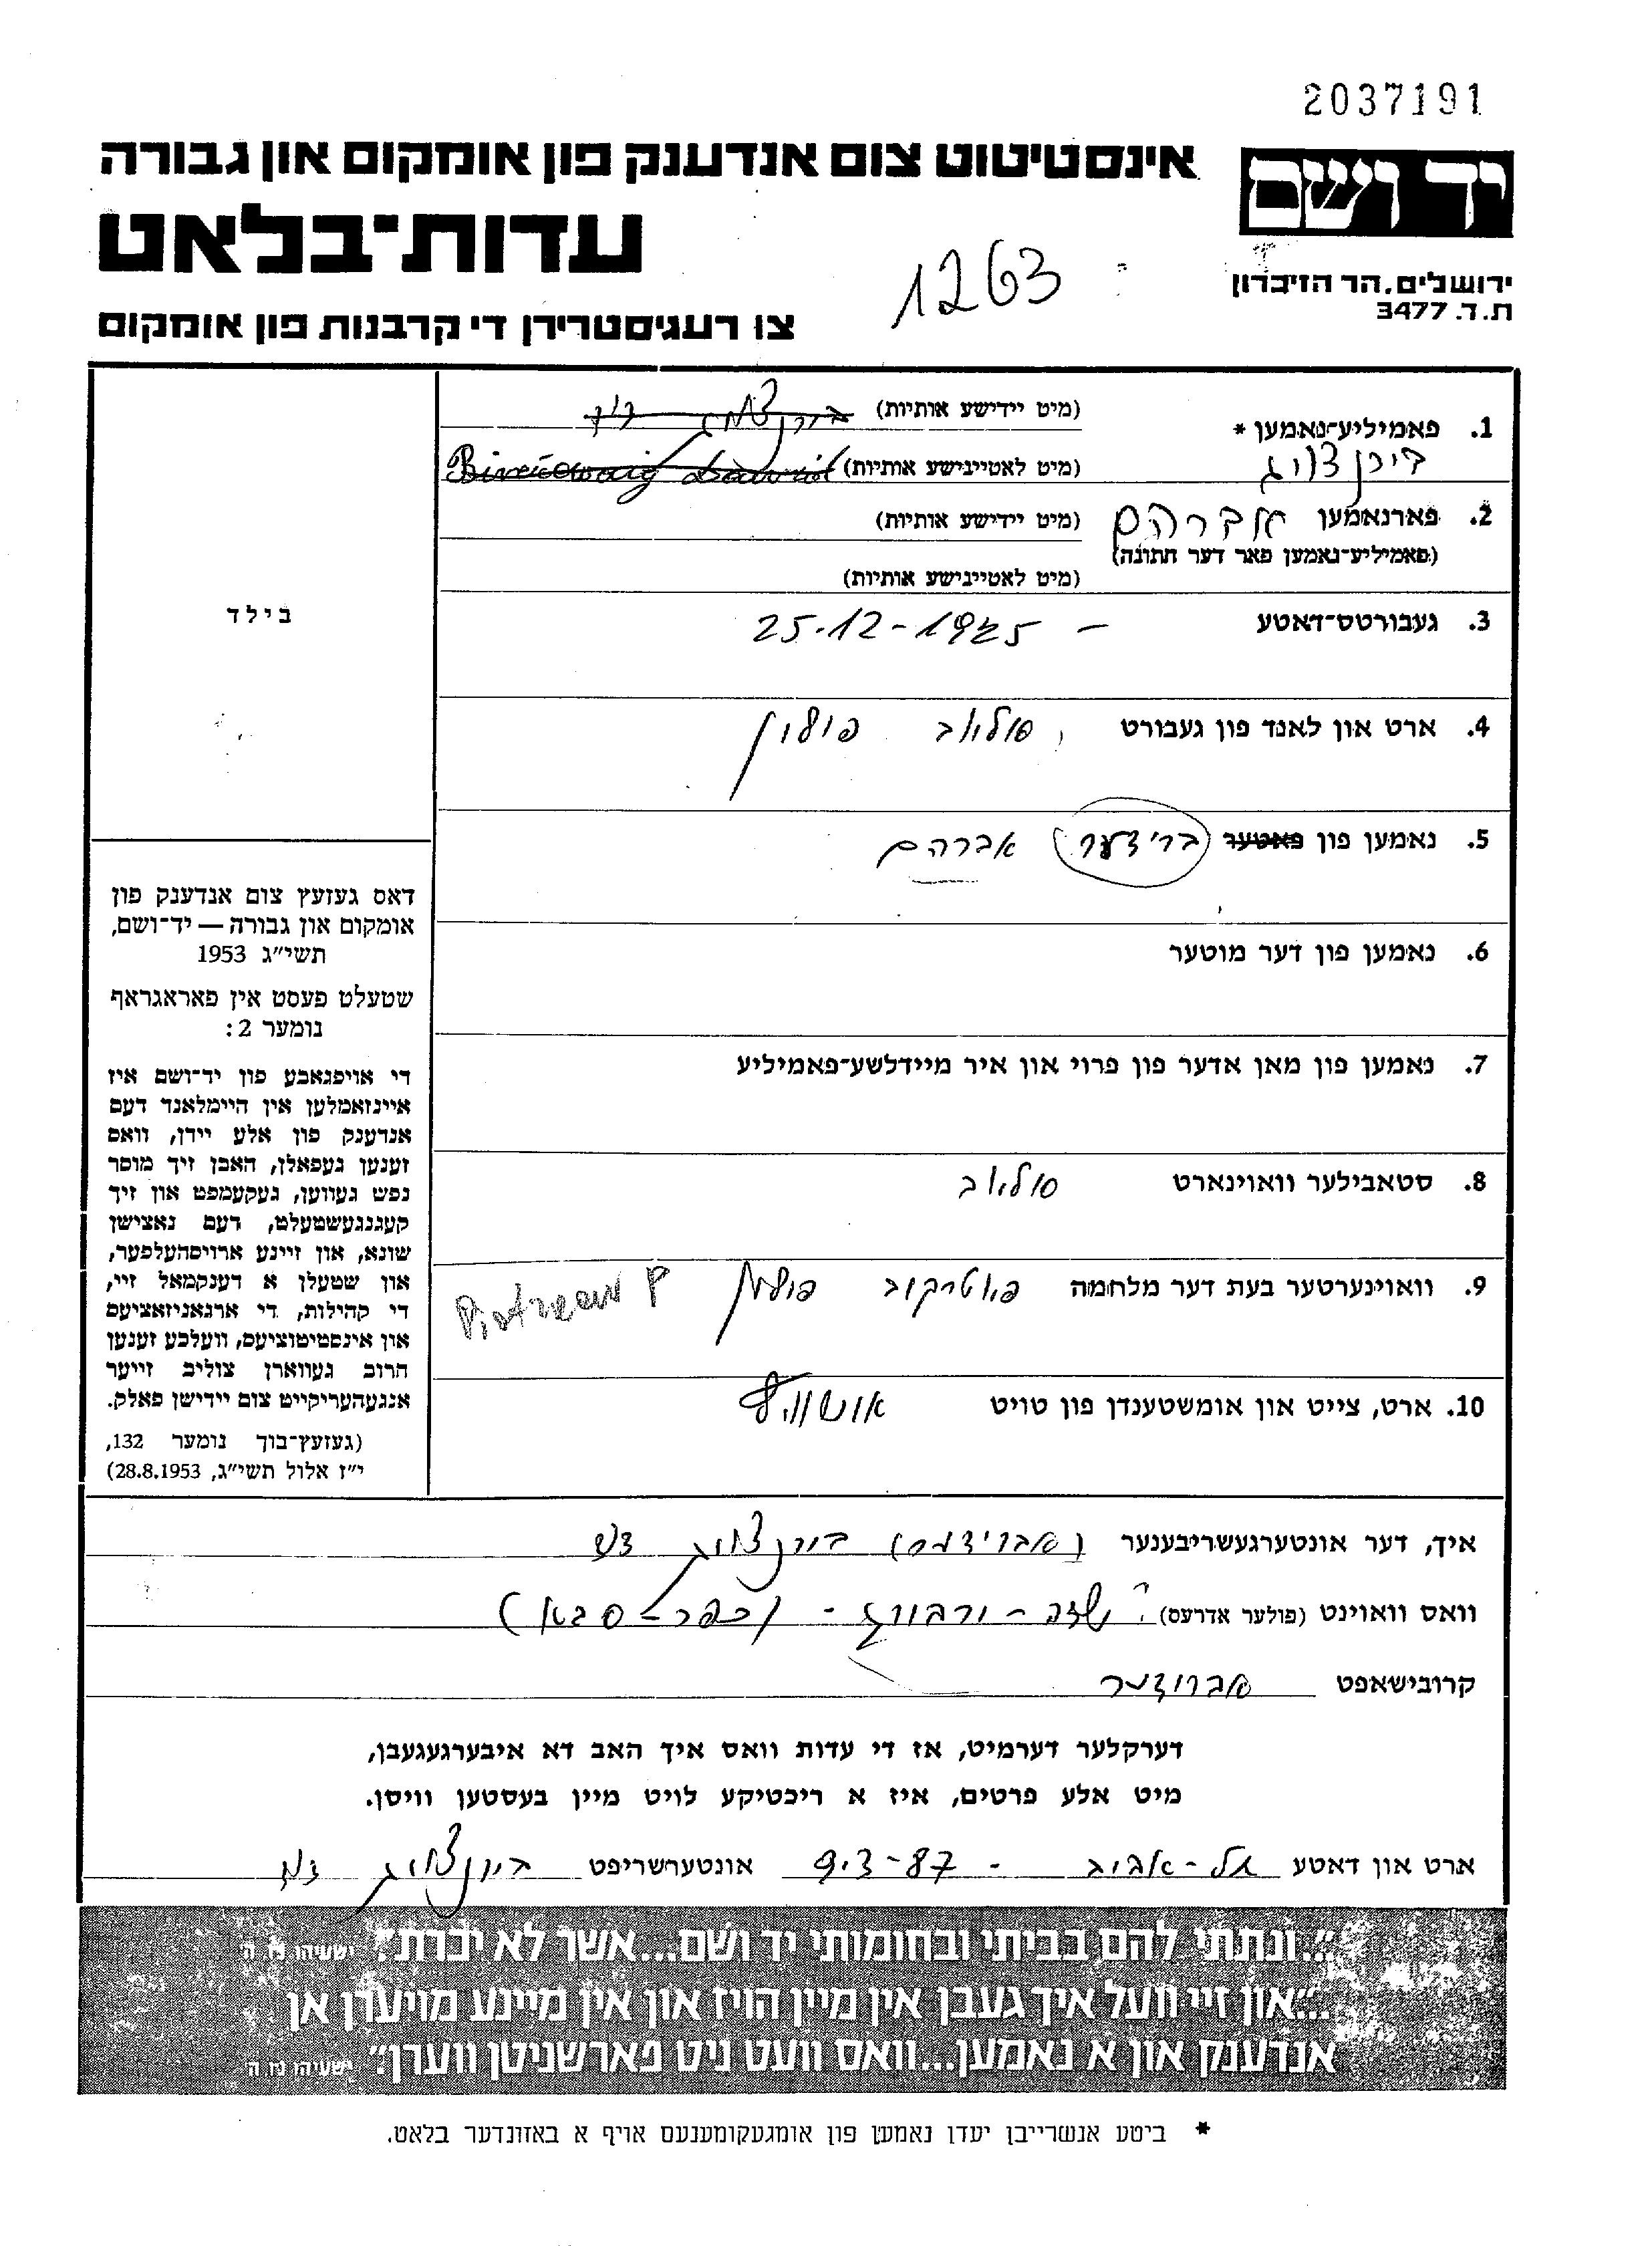 2037191
יד ושם
אינסטיטוט צום אנדענק פון אומקום און גבורה
עדות-בלאט
1263
ירושלים, הר הזיכרון
ת.ד. 3477
צו רעגיסטרירן די קרבנות פון אומקום
1. פאמיליע-נאמען * (מיט יידישע אותיות) בירנצווייג
בירנצווייג
(מיט לאטיינישע אותיות)
2. פארנאמען אברהם (מיט יידישע אותיות)
(פאמיליע-נאמען פאר דער חתונה)
(מיט לאטיינישע אותיות)
3. געבורטס-דאטע – 25.12-1925
4. ארט און לאנד פון געבורט סולוב פוילין
5. נאמען פון פאטער ברידער אברהם
6. נאמען פון דער מוטער
7. נאמען פון מאן אדער פון פרוי און איר מיידלשע-פאמיליע
8. סטאבילער וואוינארט סולוב
9. וואוינערטער בעת דער מלחמה פיוטרקוב פולין Piotrków P
10. ארט, צייט און אומשטענדן פון טויט אושוויץ
בילד
דאס געזעץ צום אנדענק פון
אומקום און גבורה — יד-ושם,
תשי"ג 1953
שטעלט פעסט אין פאראגראף
נומער 2:
די אויפגאבע פון יד-ושם איז
איינזאמלען אין היימלאנד דעם
אנדענק פון אלע יידן, וואס
זענען געפאלן, האבן זיך מוסר
נפש געווען, געקעמפט און זיך
קעגנגעשטעלט, דעם נאצישן
שונא, און זיינע ארויסהעלפער,
און שטעלן א דענקמאל זיי,
די קהילות, די ארגאניזאציעס
און אינסטיטוציעס, וועלכע זענען
חרוב געווארן צוליב זייער
אנגעהעריקייט צום יידישן פאלק.
(געזעץ-בוך נומער 132,
י"ז אלול תשי"ג, 28.8.1953)
איך, דער אונטערגעשריבענער בירנצווייג
וואס וואוינט (פולער אדרעס) שדה-ורבורג - (כפר-סבא)
קרובישאפט
דערקלער דערמיט, אז די עדות וואס איך האב דא איבערגעגעבן,
מיט אלע פרטים, איז א ריכטיקע לויט מיין בעסטען וויסן.
ארט און דאטע תל-אביב - 9.3-87 אונטערשריפט בירנצווייג
"...ונתתי להם בביתי ובחומותי יד ושם...אשר לא יכרת." ישעיהו נו ה
"...און זיי וועל איך געבן אין מיין הויז און אין מיינע מויערן אן
אנדענק און א נאמען...וואס וועט ניט פארשניטן ווערן." ישעיהו נו ה
* ביטע אנשרייבן יעדן נאמען פון אומגעקומענעם אויף א באזונדער בלאט.